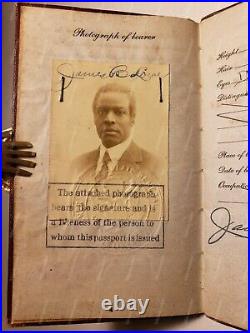 Photograph of bearer
James B
The attached photograph
bears the signature and is
a likeness of the person to
whom this passport is issued
Height
Hair
Eyes
Place of
Date of
Occupation